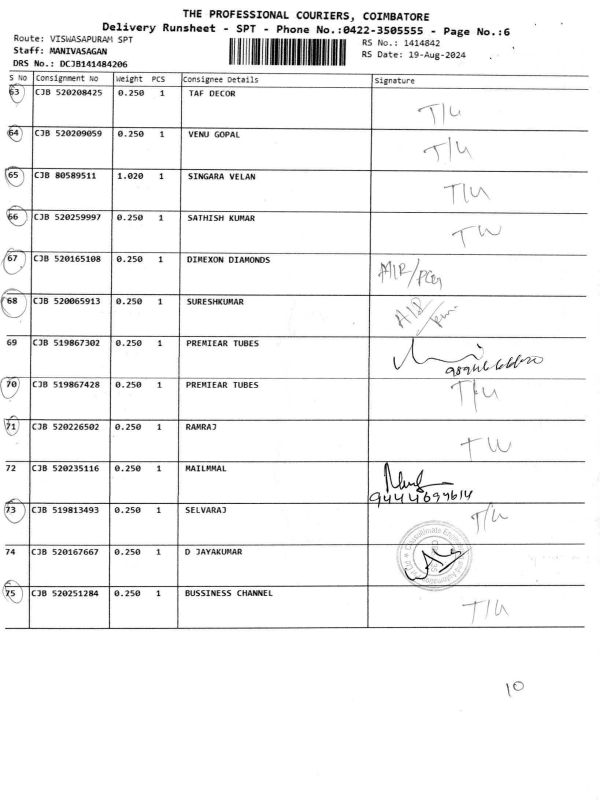 THE PROFESSIONAL COURIERS, COIMBATORE
Delivery Runsheet - SPT - Phone No.:0422-3505555 - Page No.:6
Route: VISWASAPURAM SPT RS No.: 1414842
Staff: MANIVASAGAN RS Date: 19-Aug-2024
DRS No.: DCJB141484206
S No Consignment No Weight PCS Consignee Details Signature
63 CJB 520208425 0.250 1 TAF DECOR T/U
64 CJB 520209059 0.250 1 VENU GOPAL T/U
65 CJB 80589511 1.020 1 SINGARA VELAN T/U
66 CJB 520259997 0.250 1 SATHISH KUMAR TW
67 CJB 520165108 0.250 1 DIMEXON DIAMONDS
68 CJB 520065913 0.250 1 SURESHKUMAR
69 CJB 519867302 0.250 1 PREMIEAR TUBES
70 CJB 519867428 0.250 1 PREMIEAR TUBES T/U
71 CJB 520226502 0.250 1 RAMRAJ TW
72 CJB 520235116 0.250 1 MAILMMAL
9444697614
73 CJB 519813493 0.250 1 SELVARAJ T/U
74 CJB 520167667 0.250 1 D JAYAKUMAR
75 CJB 520251284 0.250 1 BUSSINESS CHANNEL T/U
10